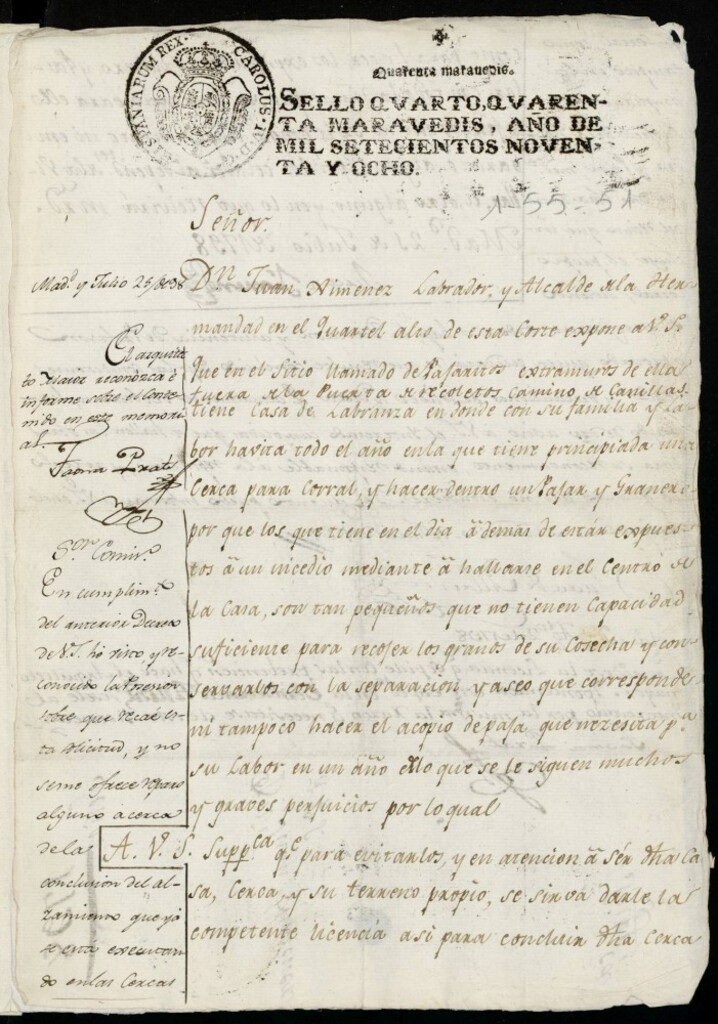 HISPANIARUM REX. CAROLUS. I. D. G.
Quarenta maravedis.
SELLO QVARTO, QVAREN-
TA MARAVEDIS, AÑO DE
MIL SETECIENTOS NOVEN-
TA Y OCHO.
1-55-51
Señor.
Dn. Juan Ximenez Labrador, y Alcalde de la Her
mandad en el Quartel alto de esta Corte expone a V.S.
Que en el Sitio llamado de Pajaritos extramuros de ella
fuera de la Puerta de recoletos Camino de Canillas
tiene Casa de Labranza en donde con su familia y La
bor havita todo el año en la que tiene principiada una
Cerca para Corral, y hacer dentro un Pajar y Granero
por que los que tiene en el dia â demas de estar expues
tos â un incedio mediante â hallarse en el Centro de
la Casa, son tan pequeños que no tienen Capacidad
suficiente para recojer los granos de su Cosecha y con
servarlos con la separacion y aseo que corresponde
ni tampoco hacer el acopio de paja que nezesita pa.
su Labor en un año de lo que se le siguen muchos
y graves perjuicios por lo qual
A. V. S. Suppca. qe. para evitarlos, y en atencion â ser dha Ca
sa, Cerca, y su terreno propio, se sirva darle la
competente licencia asi para concluir dha Cerca
Madd. y Julio 25/
El arquitec
to Maior reconozca e
informe sobre el Conte
nido en este memori
al.
Sor. Comiso.
En cumplimto.
del anterior Decreto
de V.S. he visto y re
conocido la Posesion
sobre que recae es
ta solicitud, y no
se me ofrece reparo
alguno acerca
de la
conclusion del al-
zamiento que ya
se esta executan
do en las Cercas